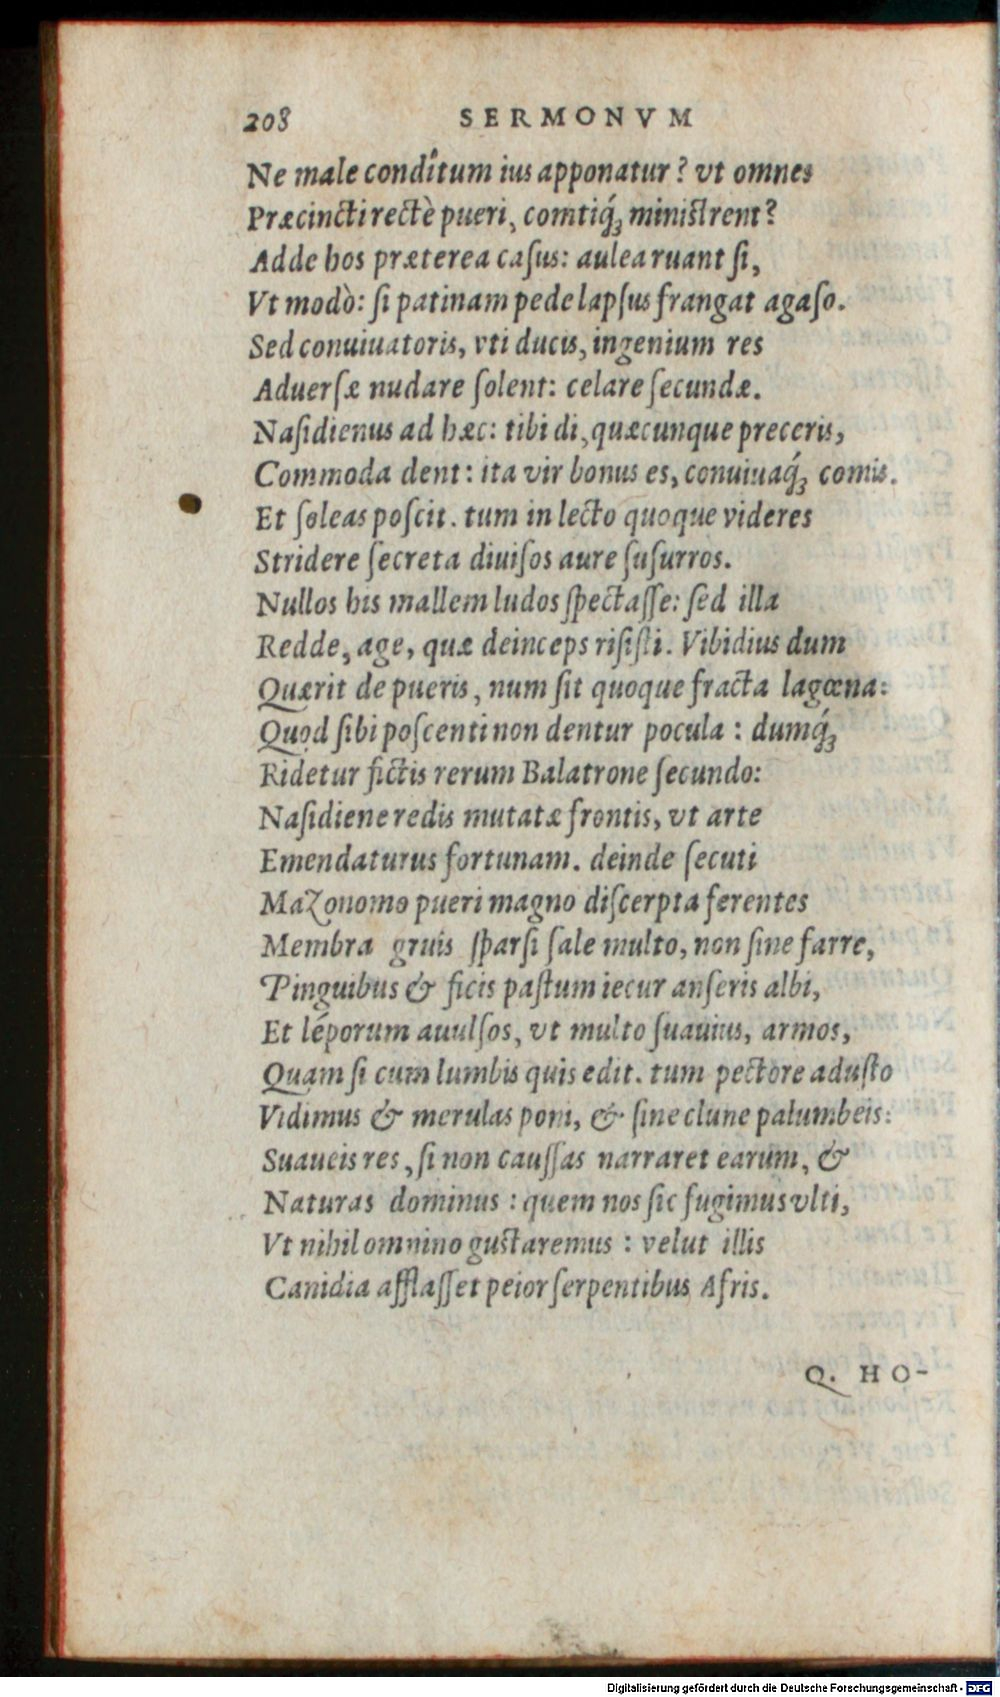 208 SERMONVM
Ne male condîtum ius apponatur? vt omnes
Præcincti rectè pueri, comtiq́ʒ ministrent?
Adde hos præterea casus: aulea ruant si,
Vt modò: si patinam pede lapsus frangat agaso.
Sed conuiuatoris, vti ducis, ingenium res
Aduersæ nudare solent: celare secundæ.
Nasidienus ad hæc: tibi di, quæcunque preceris,
Commoda dent: ita vir bonus es, conuiuaq́ʒ comis.
Et soleas poscit. tum in lecto quoque videres
Stridere secreta diuisos aure susurros.
Nullos his mallem ludos spectasse: sed illa
Redde, age, quæ deinceps risisti. Vibidius dum
Quærit de pueris, num sit quoque fracta lagœna:
Quod sibi poscenti non dentur pocula: dumq́ʒ
Ridetur fictis rerum Balatrone secundo:
Nasidiene redis mutatæ frontis, vt arte
Emendaturus fortunam. deinde secuti
Mazonomo pueri magno discerpta ferentes
Membra gruis sparsi sale multo, non sine farre,
Pinguibus & ficis pastum iecur anseris albi,
Et léporum auulsos, vt multo suauius, armos,
Quam si cum lumbis quis edit. tum pectore adusto
Vidimus & merulas poni, & sine clune palumbeis:
Suaueis res, si non caussas narraret earum, &
Naturas dominus: quem nos sic fugimus vlti,
Vt nihil omnino gustaremus: velut illis
Canidia afflasset peior serpentibus Afris.
Q. HO-
Digitalisierung gefördert durch die Deutsche Forschungsgemeinschaft - DFG